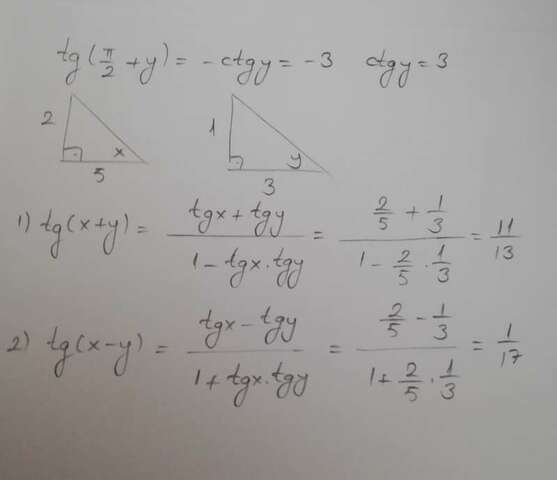 tg(π/2 + y) = -ctgy = -3 ctgy = 3
2 x 5
1 y 3
1) tg(x+y) = (tgx + tgy)/(1 - tgx·tgy) = (2/5 + 1/3)/(1 - 2/5 · 1/3) = 11/13
2) tg(x-y) = (tgx - tgy)/(1 + tgx·tgy) = (2/5 - 1/3)/(1 + 2/5 · 1/3) = 1/17